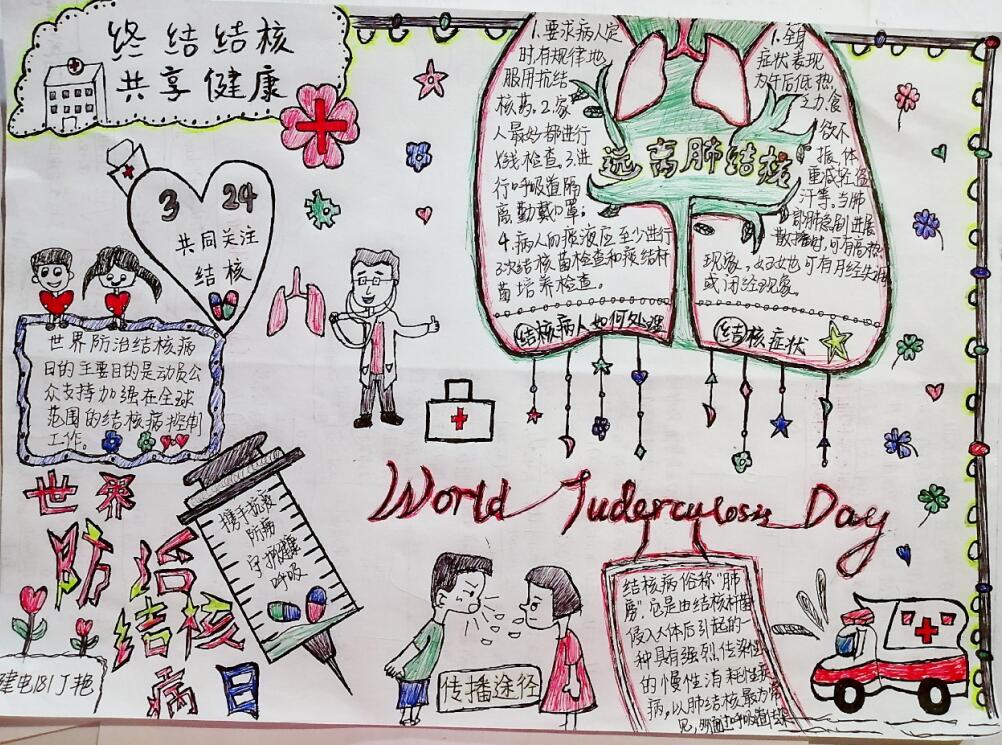 终结结核
共享健康
3 24
共同关注
结核
世界防治结核病
日的主要目的是动员公
众支持加强在全球
范围的结核病控制
工作。
1.要求病人定
时有规律地
服用抗结
核药。2.家
人最好都进行
X线检查。3.进
行呼吸道隔
离勤戴口罩;
4.病人的痰液应至少进行
3次结核菌检查和痰结杆
菌培养检查。
结核病人如何处理
远离肺结核
1.全身
症状表现
为午后低热,
乏力,食
欲不
振,体
重减轻,盗
汗等。当肺
部肺急剧进展
散播时,可有高热
现象,妇女也可有月经失调
或闭经现象
结核症状
World Tuderculosis Day
世界
防治
结核
病日
携手抗疫
防痨
守护健康
呼吸
建电181丁艳
传播途径
结核病俗称“肺
痨”.它是由结核杆菌
侵入人体后引起的一
种具有强烈传染性
的慢性消耗性疾
病,以肺结核最为常
见,